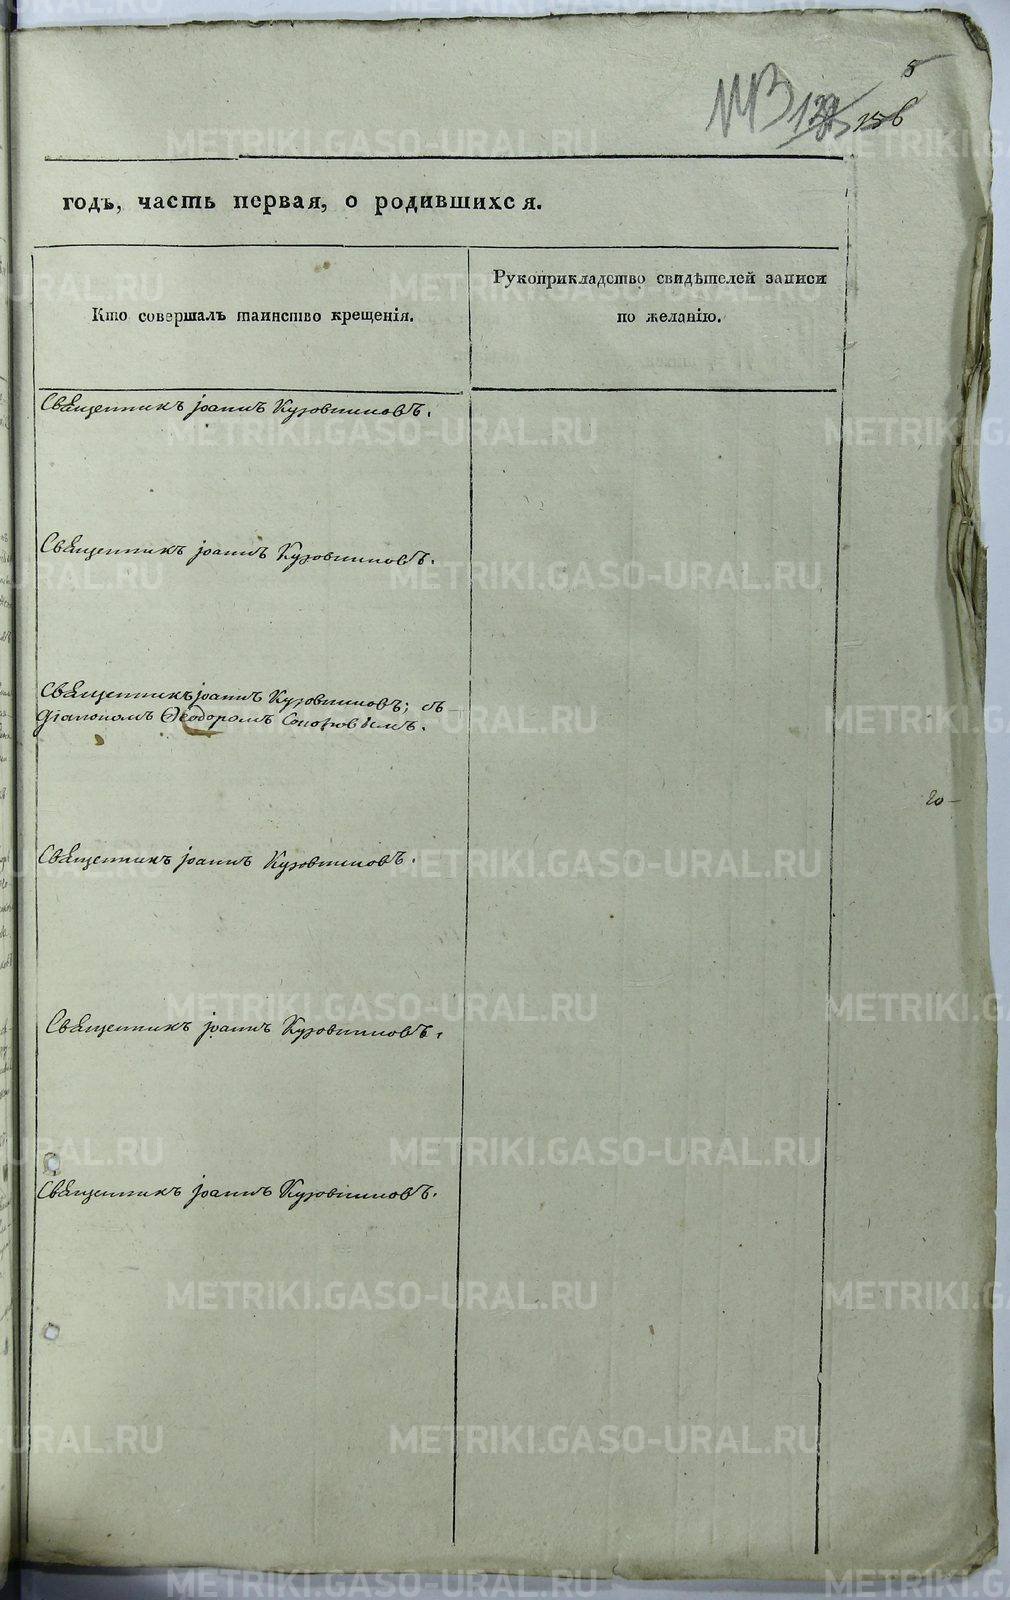 5
113 156
годъ, часть первая, о родившихся.
Кто совершалъ таинство крещенія.
Рукоприкладство свидѣтелей записи
по желанію.
Священникъ Іоаннъ Кузовниковъ.
Священникъ Іоаннъ Кузовниковъ.
Священникъ Іоаннъ Кузовниковъ; съ
діакономъ Ѳеодоромъ
Священникъ Іоаннъ Кузовниковъ.
Священникъ Іоаннъ Кузовниковъ.
Священникъ Іоаннъ Кузовниковъ.
METRIKI.GASO-URAL.RU